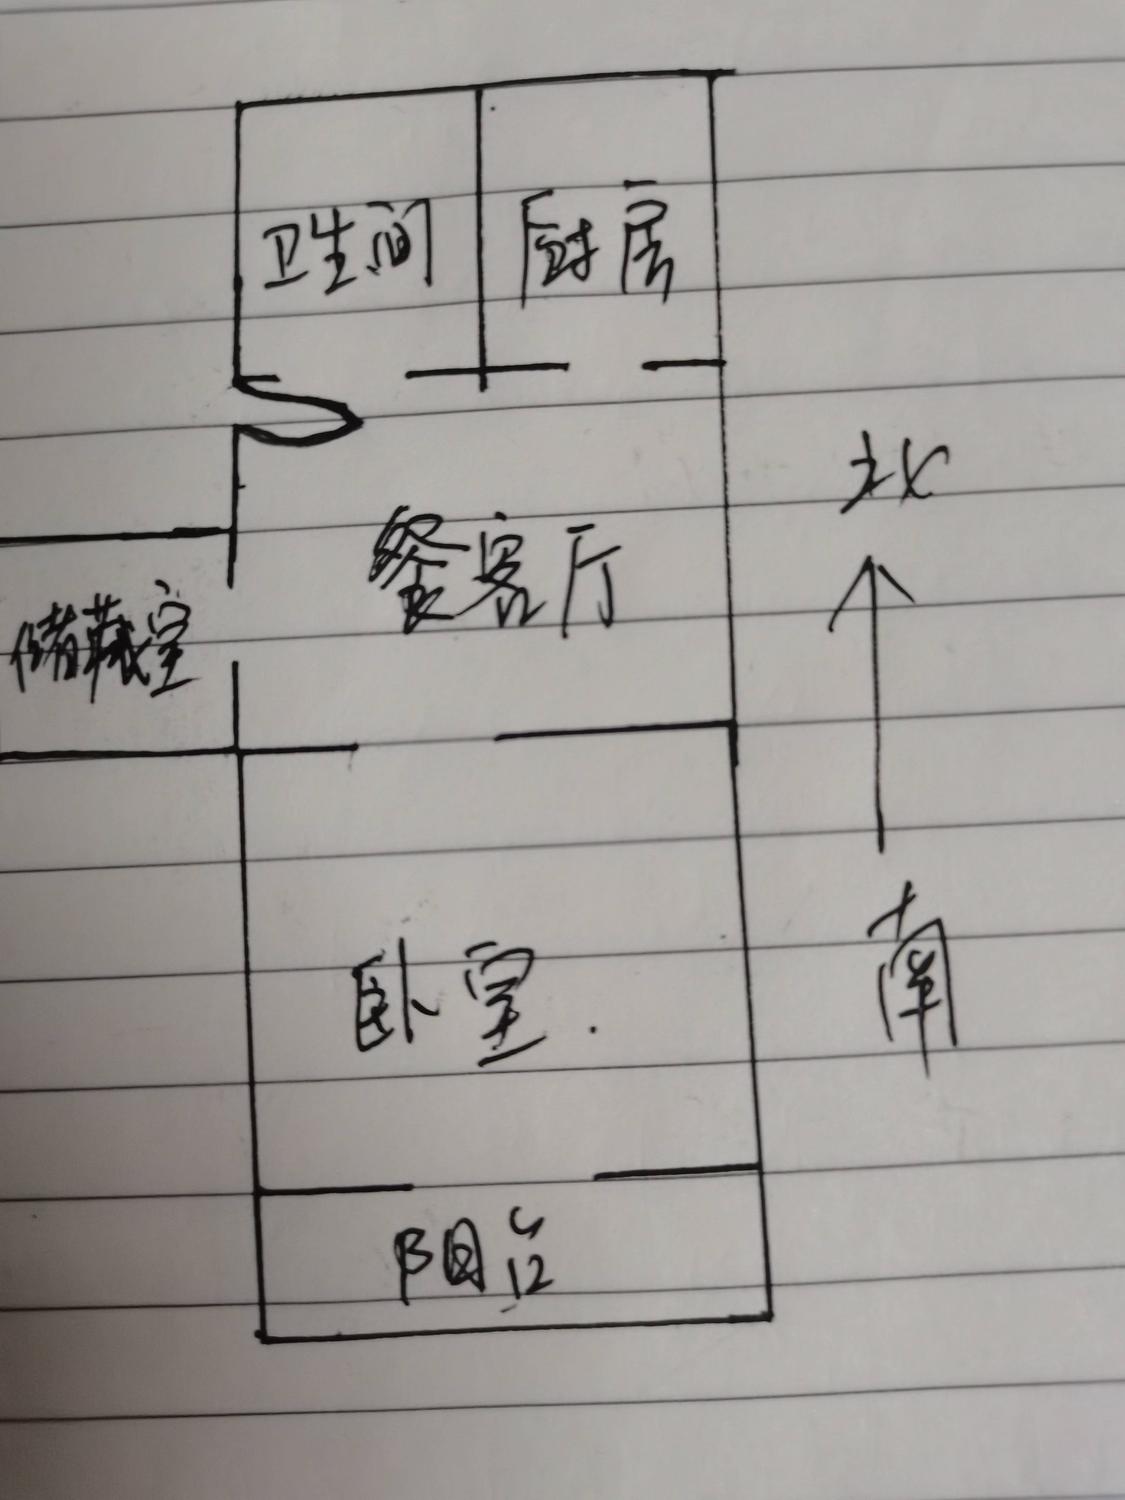 卫生间 厨房
北
餐客厅
储藏室
南
卧室
阳台